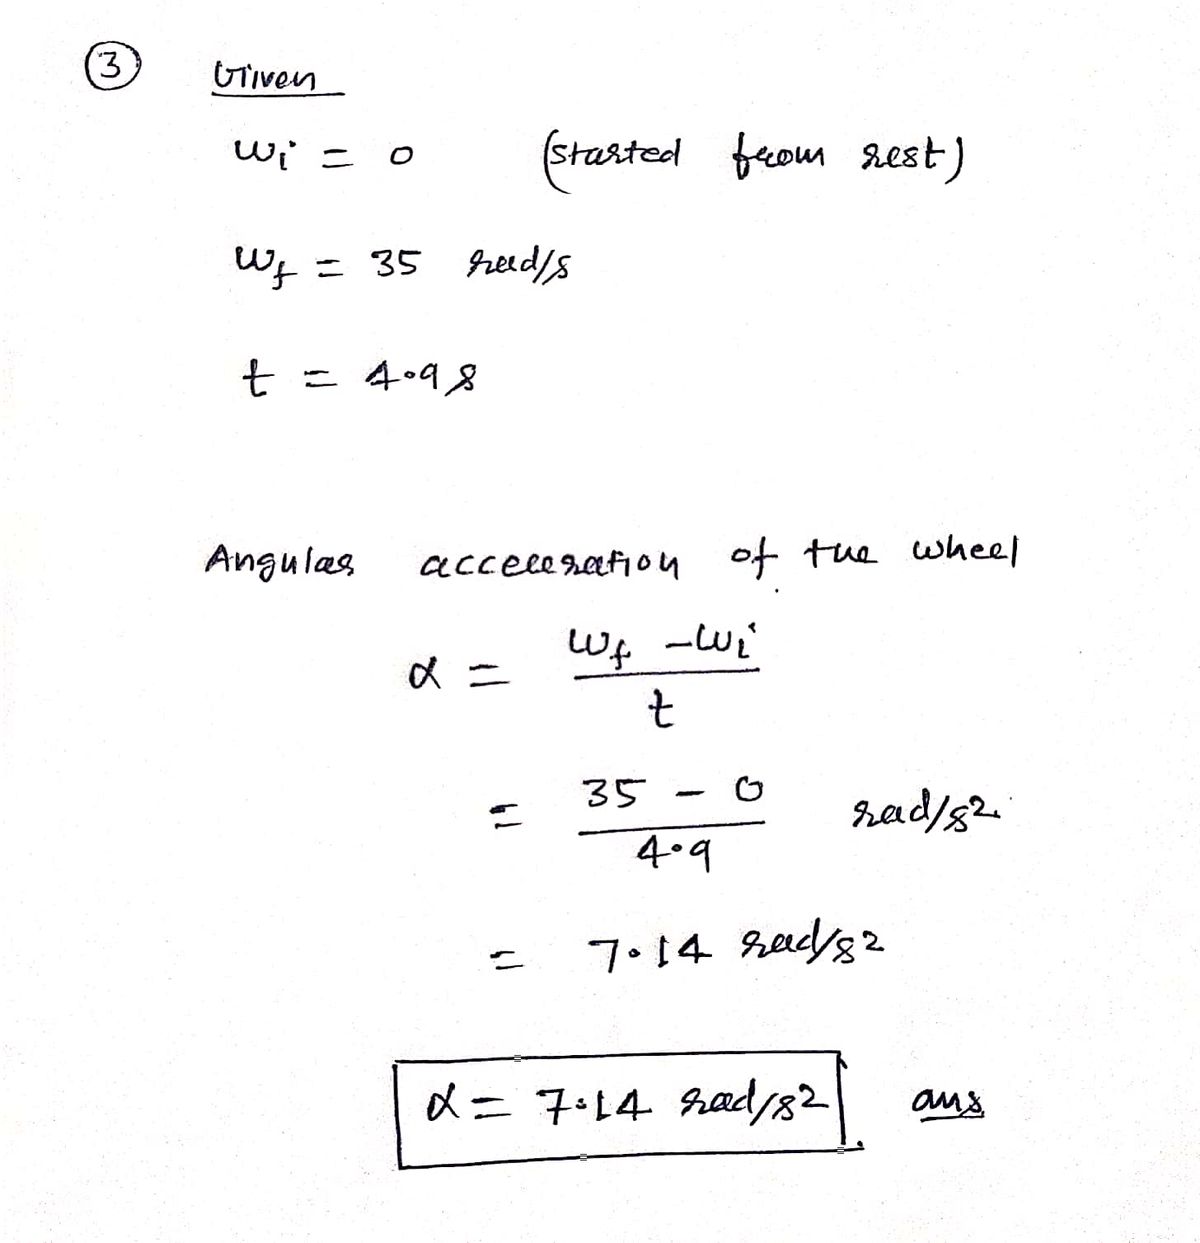 ③ Given
ωi = 0 (started from rest)
ωf = 35 rad/s
t = 4.9 s
Angular acceleration of the wheel
α = ωf - ωi / t
= 35 - 0 / 4.9 rad/s2
= 7.14 rad/s2
α = 7.14 rad/s2 ans